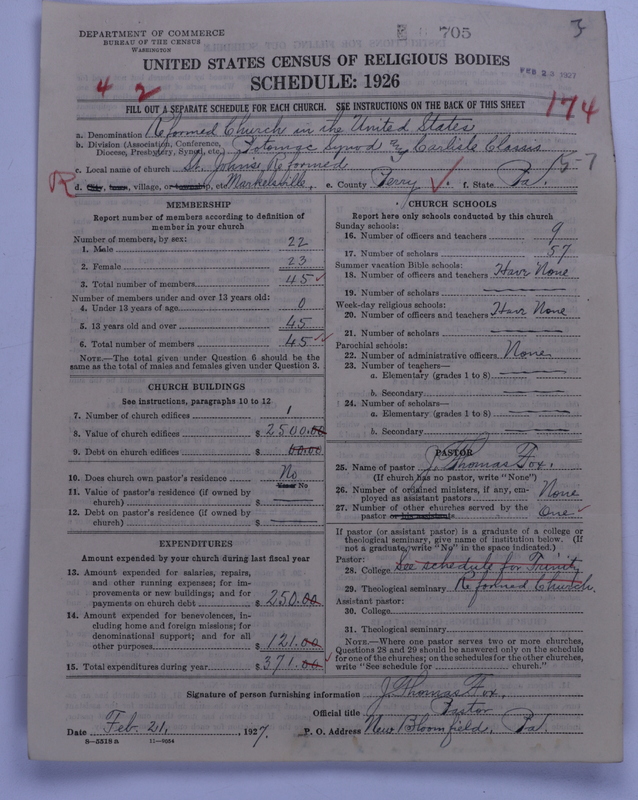 DEPARTMENT OF COMMERCE
BUREAU OF THE CENSUS
WASHINGTON
705
UNITED STATES CENSUS OF RELIGIOUS BODIES
FEB 23 1927
SCHEDULE: 1926
4 2
174
FILL OUT A SEPARATE SCHEDULE FOR EACH CHURCH. SEE INSTRUCTIONS ON THE BACK OF THIS SHEET
a. Denomination Reformed Church in the United States
b. Division (Association, Conference, Diocese, Presbytery, Synod, etc.) Potomac Synod Carlisle Classis
c. Local name of church St. Johns Reformed
57
R
d. City, town, village, or township, etc. Markelsville, e. County Perry. f. State Pa.
MEMBERSHIP
Report number of members according to definition of
member in your church
Number of members, by sex:
1. Male 22
2. Female 23
3. Total number of members 45
Number of members under and over 13 years old:
4. Under 13 years of age 0
5. 13 years old and over 45
6. Total number of members 45
NOTE.—The total given under Question 6 should be
same as the total of males and females given under Question 3.
CHURCH BUILDINGS
See instructions, paragraphs 10 to 12
7. Number of church edifices 1
8. Value of church edifices $ 2500.00
9. Debt on church edifices $ 00.00
10. Does church own pastor's residence No
Yes or No
11. Value of pastor's residence (if owned by
church) $
12. Debt on pastor's residence (if owned by
church) $
EXPENDITURES
Amount expended by your church during last fiscal year
13. Amount expended for salaries, repairs,
and other running expenses; for im-
provements or new buildings; and for
payments on church debt $ 250.00
14. Amount expended for benevolences, in-
cluding home and foreign missions; for
denominational support; and for all
other purposes $ 121.00
15. Total expenditures during year $ 371.00
CHURCH SCHOOLS
Report here only schools conducted by this church
Sunday schools:
16. Number of officers and teachers 9
17. Number of scholars 57
Summer vacation Bible schools:
18. Number of officers and teachers Have None
19. Number of scholars
Week-day religious schools:
20. Number of officers and teachers Have None
21. Number of scholars
Parochial schools:
22. Number of administrative officers None
23. Number of teachers—
a. Elementary (grades 1 to 8)
b. Secondary
24. Number of scholars—
a. Elementary (grades 1 to 8)
b. Secondary
PASTOR
25. Name of pastor J. Thomas Fox.
(If church has no pastor, write "None")
26. Number of ordained ministers, if any, em-
ployed as assistant pastors None
27. Number of other churches served by the
pastor or his assistants One
If pastor (or assistant pastor) is a graduate of a college or
theological seminary, give name of institution below. (If
not a graduate, write "No" in the space indicated.)
Pastor:
28. College See schedule for Trinity
29. Theological seminary Reformed Church.
Assistant pastor:
30. College
31. Theological seminary
NOTE.—Where one pastor serves two or more churches,
Questions 28 and 29 should be answered only on the schedule
for one of the churches; on the schedules for the other churches,
write "See schedule for church."
Signature of person furnishing information J. Thomas Fox,
Official title Pastor
Date Feb. 21, 1927. P. O. Address New Bloomfield, Pa.
8-5518a 11-9024